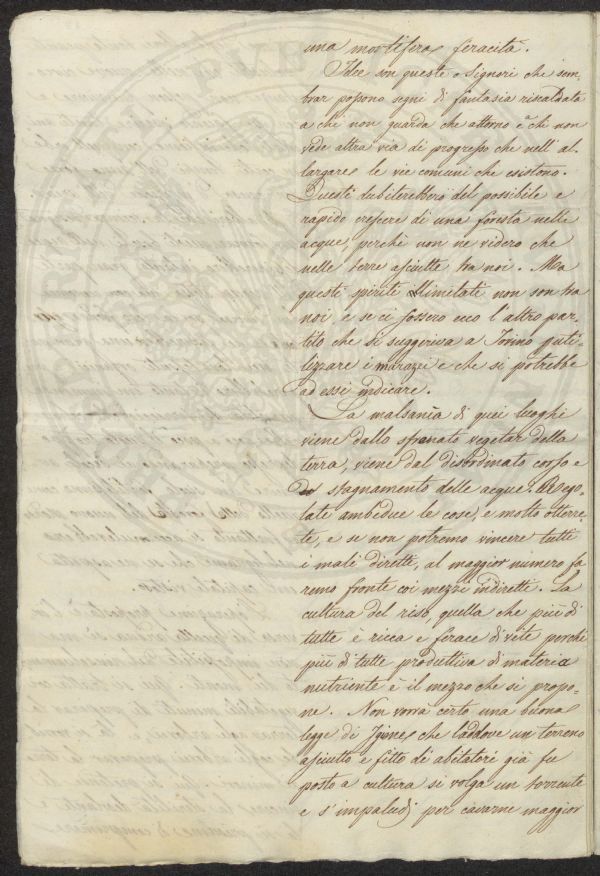 una mortifera feracità.
Idee son queste o Signori che sem
brar possono segni di fantasia riscaldata
a chi non guarda che attorno è chi non
vede altra via di progresso che nell' al
largare le vie comuni che esistono.
Questi dubiterebbero del possibile e
rapido crescere di una foresta nelle
acque, perchè non ne videro che
nelle terre asciutte tra noi. Ma
questi spiriti illimitati non son tra
noi e se ci fossero ecco l'altro par=
tito che si suggeriva a Torino
lizzare i marazzi e che si potrebbe
ad essi indicare.
La malsanìa di quei luoghi
viene dallo sfrenato vegetar della
terra, viene dal disordinato corso e
stagnamento delle acque. Rego
late ambedue le cose, e molto otterre
te, e se non potremo vincere tutti
i mali diretti, al maggior numero fa
remo fronte coi mezzi indiretti. La
cultura del riso, quella che più di
tutte è ricca e ferace di vite perchè
più di tutte produttiva di materia
nutriente è il mezzo che si propo=
ne. Non vorrà certo una buona
legge di Igiene che laddove un terreno
asciutto e fitto di abitatori già fu
posto a cultura si volga un torrente
e s'impaludi per cavarne maggior